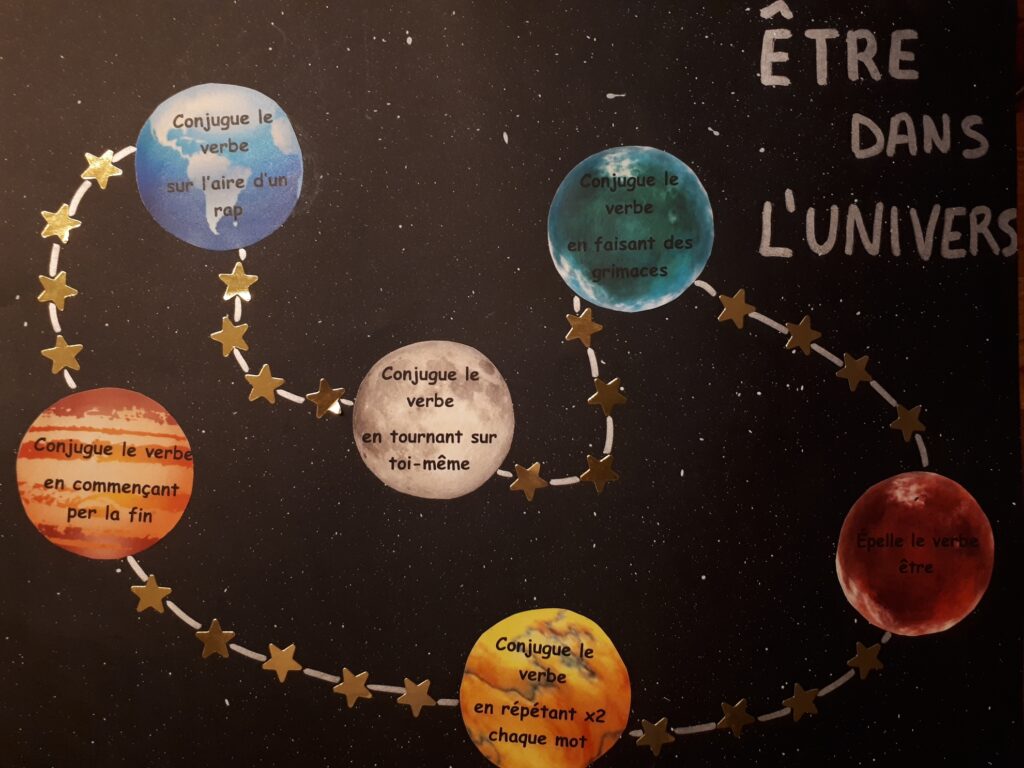 ÊTRE
DANS
L'UNIVERS
Conjugue le
verbe
sur l'aire d'un
rap
Conjugue le
verbe
en faisant des
grimaces
Conjugue le
verbe
en tournant sur
toi-même
Conjugue le verbe
en commençant
per la fin
Épelle le verbe
être
Conjugue le
verbe
en répétant x2
chaque mot